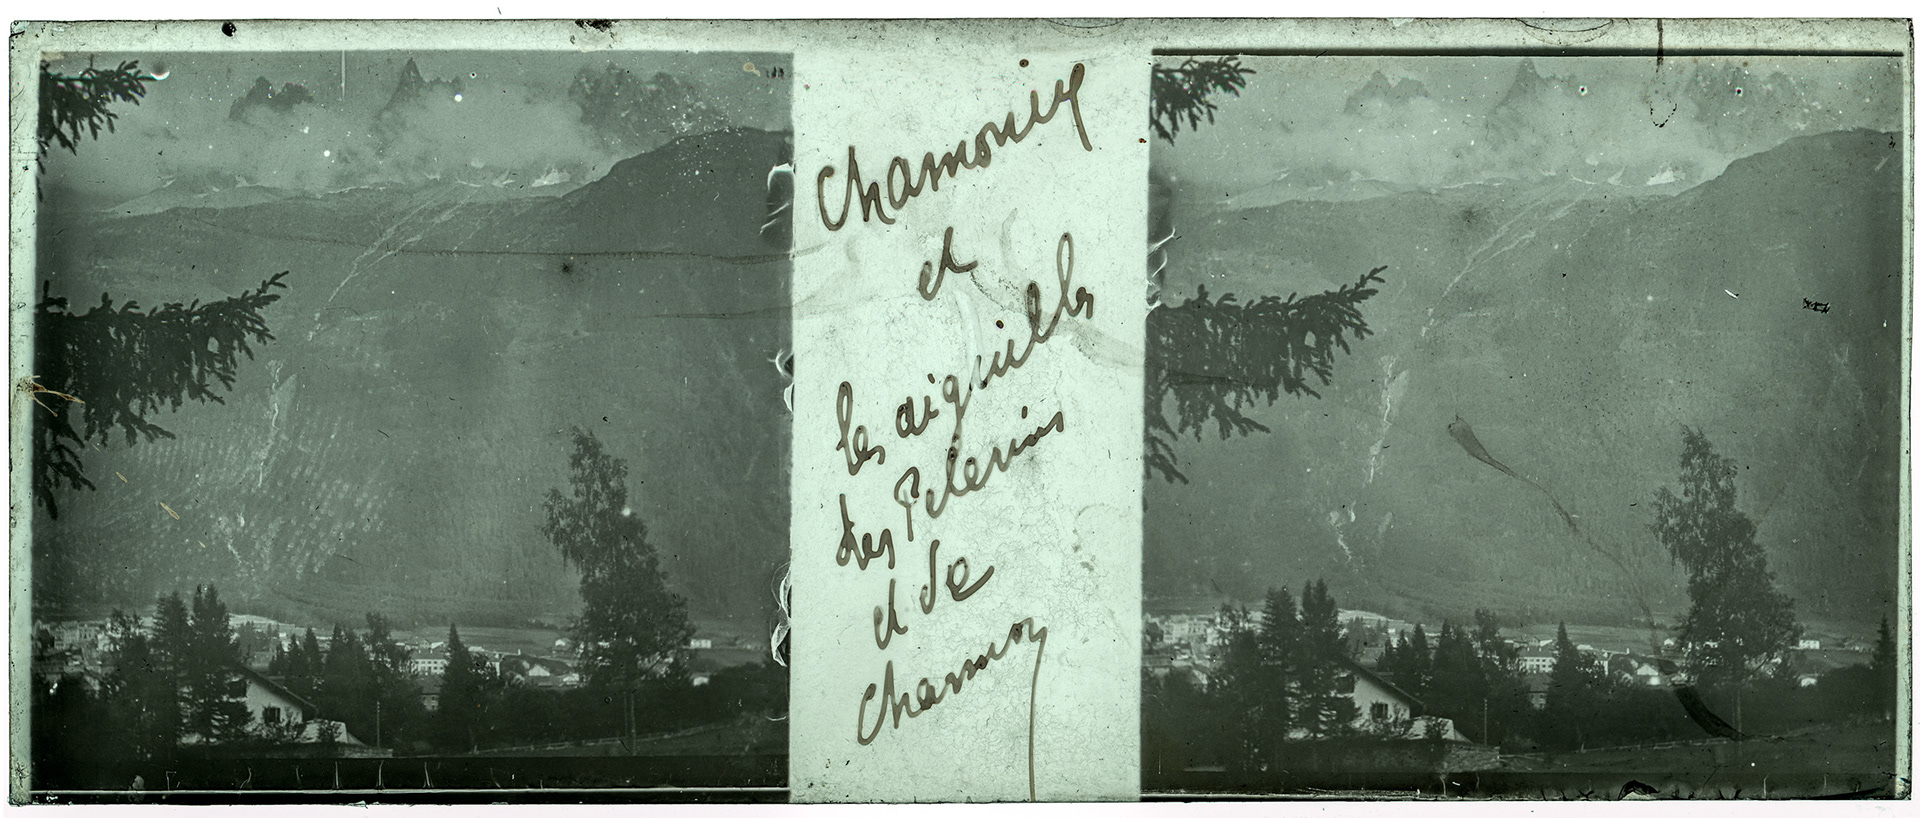 Chamonix
et
les aiguilles
des Pelerins
et de
Chamon